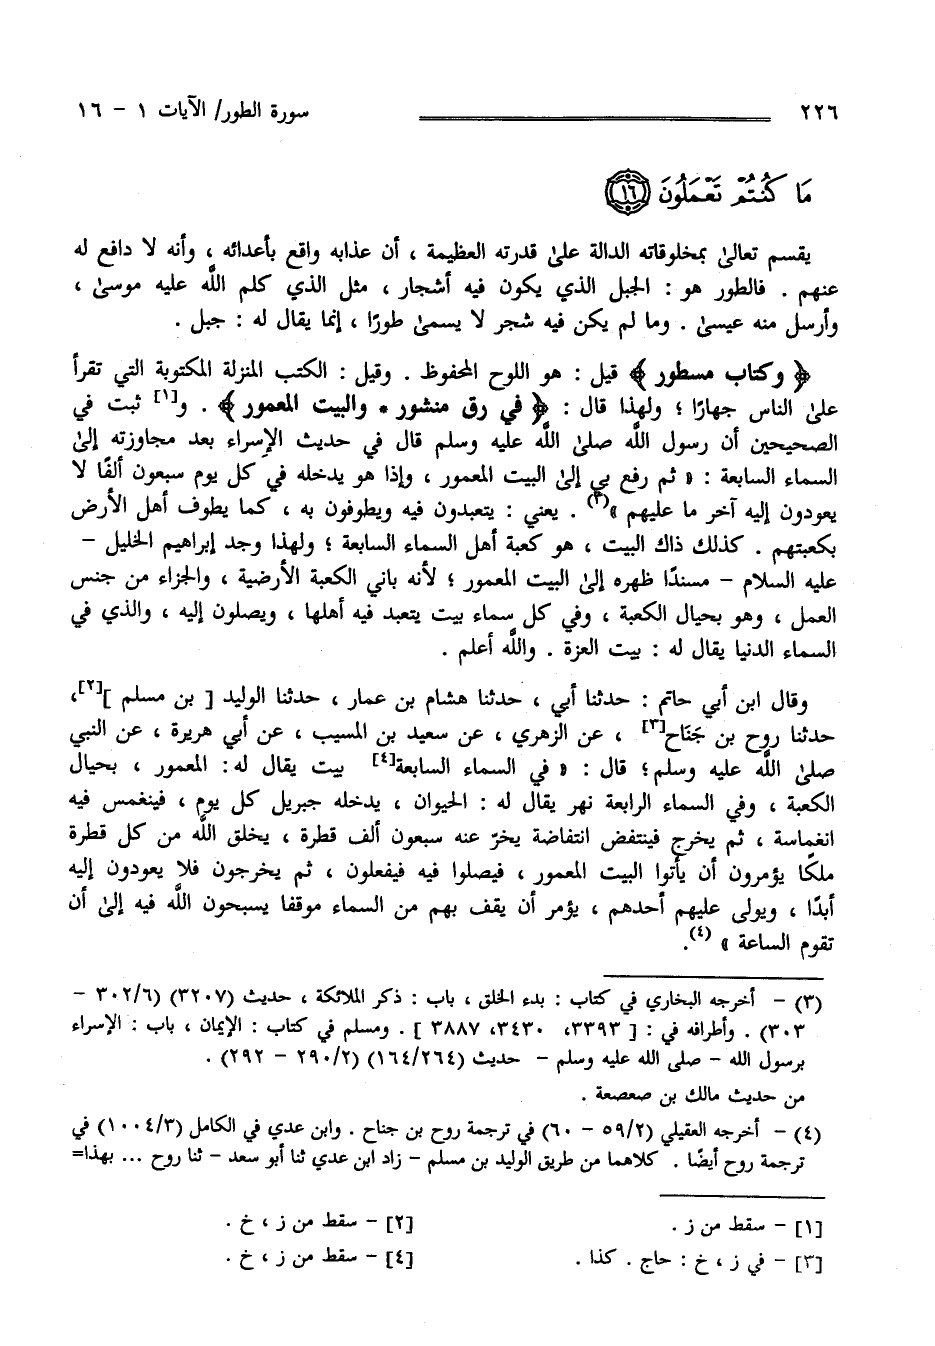 ٢٢٦ سورة الطور/ الآيات ١ - ١٦
مَا كُنتُمْ تَعْمَلُونَ ١٦
يقسم تعالىٰ بمخلوقاته الدالة علىٰ قدرته العظيمة ، أن عذابه واقع بأعدائه ، وأنه لا دافع له
عنهم . فالطور هو : الجبل الذي يكون فيه أشجار ، مثل الذي كلم اللَّه عليه موسىٰ ،
وأرسل منه عيسىٰ . وما لم يكن فيه شجر لا يسمىٰ طورًا ، إنما يقال له : جبل .
﴿ وكتاب مسطور ﴾ قيل : هو اللوح المحفوظ . وقيل : الكتب المنزلة المكتوبة التي تقرأ
علىٰ الناس جهارًا ؛ ولهذا قال : ﴿ في رق منشور * والبيت المعمور ﴾ . و[١] ثبت في
الصحيحين أن رسول اللَّه صلىٰ اللَّه عليه وسلم قال في حديث الإسراء بعد مجاوزته إلىٰ
السماء السابعة : « ثم رفع بي إلىٰ البيت المعمور ، وإذا هو يدخله في كل يوم سبعون ألفًا لا
يعودون إليه آخر ما عليهم »(٣) . يعني : يتعبدون فيه ويطوفون به ، كما يطوف أهل الأرض
بكعبتهم . كذلك ذاك البيت ، هو كعبة أهل السماء السابعة ؛ ولهذا وجد إبراهيم الخليل -
عليه السلام - مسندًا ظهره إلىٰ البيت المعمور ؛ لأنه باني الكعبة الأرضية ، والجزاء من جنس
العمل ، وهو بحيال الكعبة ، وفي كل سماء بيت يتعبد فيه أهلها ، ويصلون إليه ، والذي في
السماء الدنيا يقال له : بيت العزة . واللَّه أعلم .
وقال ابن أبي حاتم : حدثنا أبي ، حدثنا هشام بن عمار ، حدثنا الوليد [ بن مسلم ][٢]،
حدثنا روح بن جَنَاح[٣] ، عن الزهري ، عن سعيد بن المسيب ، عن أبي هريرة ، عن النبي
صلىٰ اللَّه عليه وسلم؛ قال : « في السماء السابعة[٤] بيت يقال له : المعمور ، بحيال
الكعبة ، وفي السماء الرابعة نهر يقال له : الحيوان ، يدخله جبريل كل يوم ، فينغمس فيه
انغماسة ، ثم يخرج فينتفض انتفاضة يخرّ عنه سبعون ألف قطرة ، يخلق اللَّه من كل قطرة
ملكًا يؤمرون أن يأتوا البيت المعمور ، فيصلوا فيه فيفعلون ، ثم يخرجون فلا يعودون إليه
أبدًا ، ويولى عليهم أحدهم ، يؤمر أن يقف بهم من السماء موقفا يسبحون اللَّه فيه إلىٰ أن
تقوم الساعة » (٤).
(٣) - أخرجه البخاري في كتاب : بدء الخلق ، باب : ذكر الملائكة ، حديث (٣٢٠٧) (٣٠٢/٦ -
٣٠٣) . وأطرافه في : [ ٣٣٩٣، ٣٤٣٠، ٣٨٨٧ ] . ومسلم في كتاب : الإيمان ، باب : الإسراء
برسول الله - صلى الله عليه وسلم - حديث (١٦٤/٢٦٤) (٢٩٠/٢ - ٢٩٢) .
من حديث مالك بن صعصعة .
(٤) - أخرجه العقيلي (٥٩/٢ - ٦٠) في ترجمة روح بن جناح . وابن عدي في الكامل (١٠٠٤/٣) في
ترجمة روح أيضًا . كلاهما من طريق الوليد بن مسلم - زاد ابن عدي ثنا أبو سعد - ثنا روح ... بهذا=
[١] - سقط من ز . [٢] - سقط من ز ، خ .
[٣] - في ز ، خ : حاج . كذا . [٤] - سقط من ز ، خ .